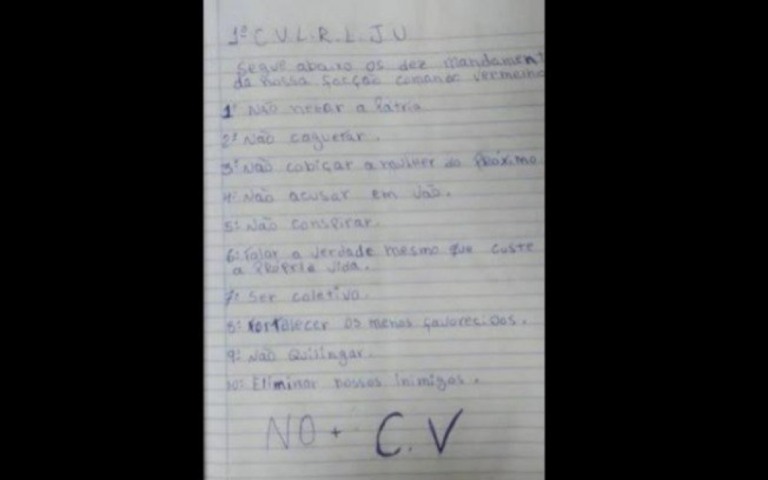 1º C V.L.R.L.J U
Segue abaixo os dez mandamen
da nossa facção comando vermelho
1º Não negar a Pátria
2º Não caguetar.
3º Não cobiçar a mulher do Próximo
4º Não acusar em vão.
5º Não conspirar.
6º Falar a verdade mesmo que custe
a Própria vida.
7º Ser coletivo.
8º Fortalecer os menos favorecidos.
9º Não Quilingar.
10º Eliminar nossos inimigos.
NO + C.V